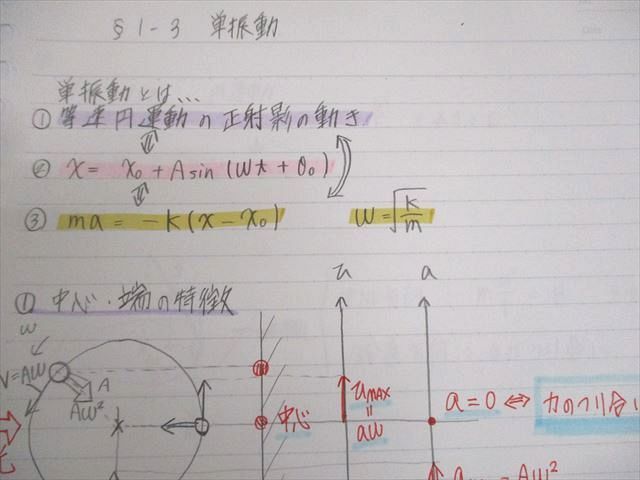 §1-3 単振動
単振動とは...
① 等速円運動の正射影の動き
② x = x₀ + A sin (ωt + θ₀)
③ ma = -K(x - x₀) ω = √K/m
① 中心・端の特徴
ω
v a
V=Aω A
Aω²
中心 vmax = aω a = 0 ⇔ 力のつり合い
= Aω²